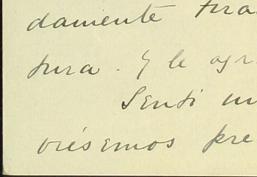 damente
tura. Y le agr
Sentí un
viésemos pre